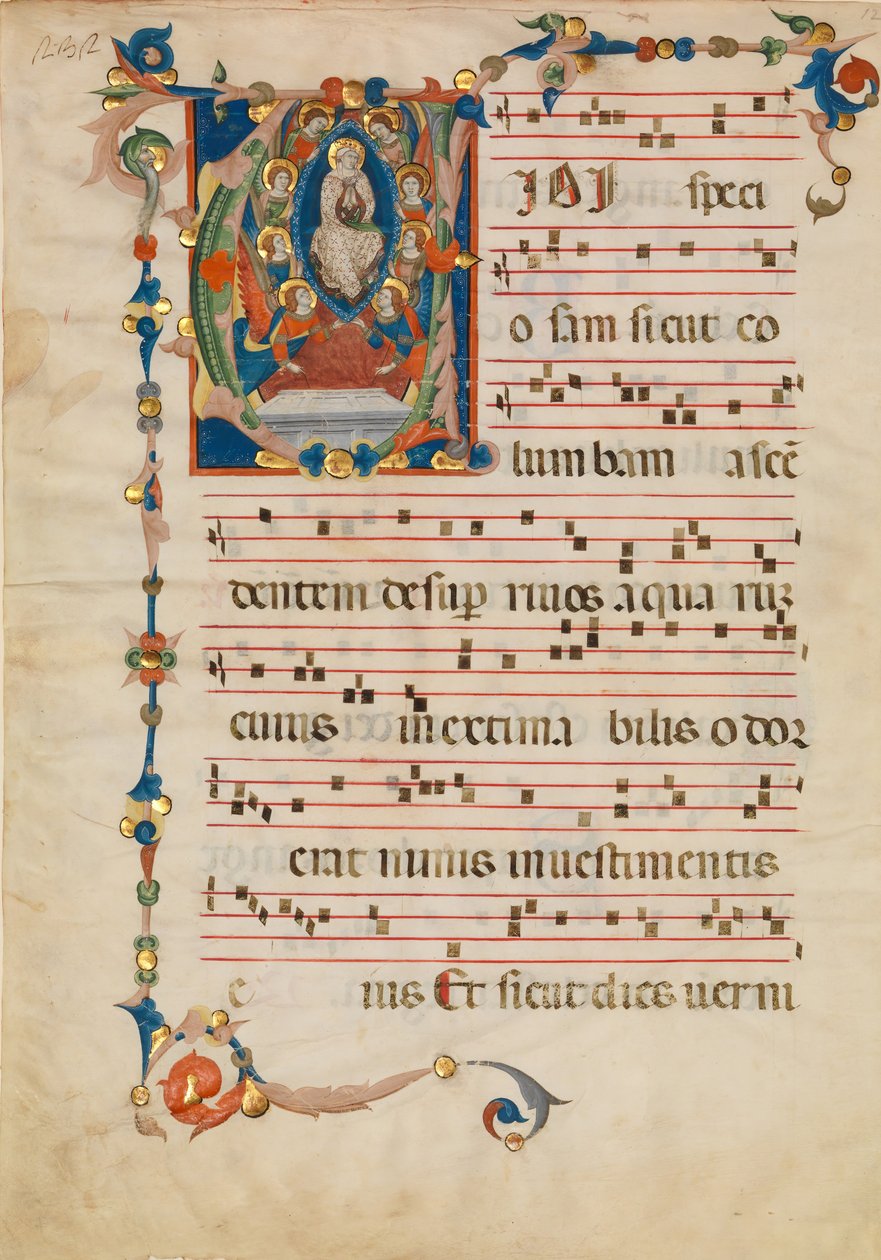 12
VIDI speci
o sam sicut co
lumbam ascē
dentem desup rivos aquaruz
cuius in extima bilis odor
erat nimis in vestimentis
e ius Et sicut dies verni